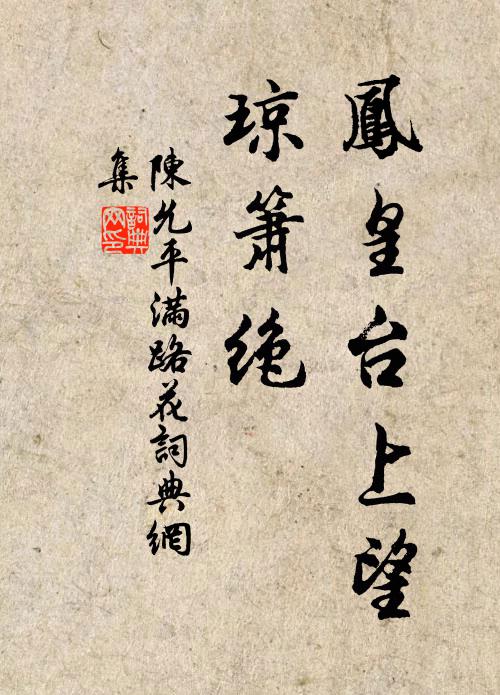 鳳皇台上望
琼簫绝
陳允平滿路花詞典網
集
詞典
网印